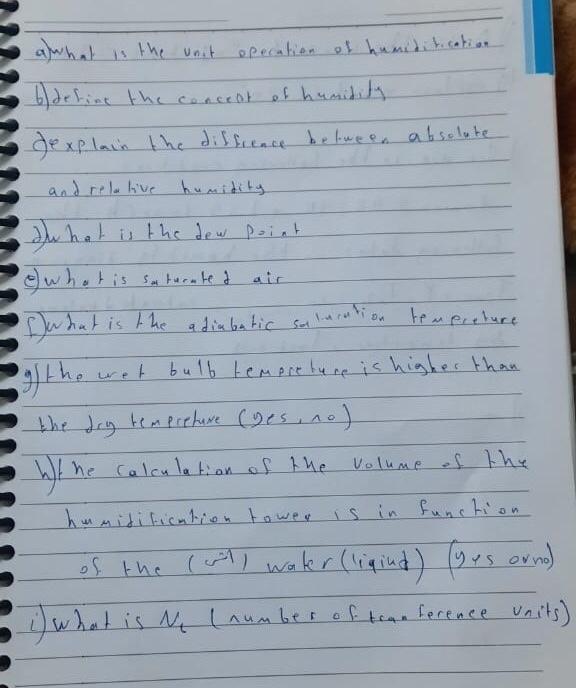 a) what is the unit operation of humidification
b) define the concept of humidity
c) explain the diffrence between absolute
and relative humidity
d) what is the dew point
e) what is saturated air
f) what is the adiabatic saturation tempreture
g) the wet bulb tempreture is higher than
the dry tempreture (yes, no)
h) the calculation of the volume of the
humidification tower is in function
of the ( ) water (liqiud) (yes or no)
i) what is Nt (number of tranference units)